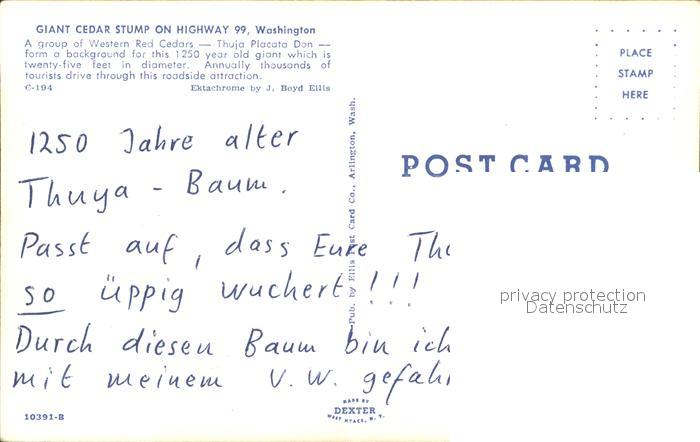 GIANT CEDAR STUMP ON HIGHWAY 99, Washington
A group of Western Red Cedars — Thuja Placata Don —
form a background for this 1250 year old giant which is
twenty-five feet in diameter. Annually thousands of
tourists drive through this roadside attraction.
C-194 Ektachrome by J. Boyd Ellis
PLACE
STAMP
HERE
POST CARD
Pub. by Ellis Post Card Co., Arlington, Wash.
1250 Jahre alter
Thuya - Baum.
Passt auf, dass Eure
so üppig wuchert!!!
Durch diesen Baum bin ich
mit meinem V.W.
privacy protection
Datenschutz
10391-B
MADE BY
DEXTER
WEST NYACK, N. Y.